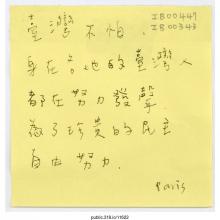 臺灣不怕. IB00447
IB00343
身在各地的臺灣人
都在努力發聲
為了珍貴的民主
自由努力.
Paris
public.318.io/11623